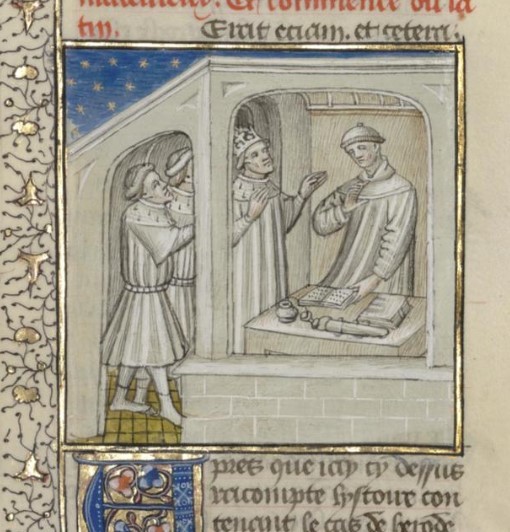 Et commence ou la
tin. Erat eciam. et cetera.
Apres que icy cy dessus
racompte lystoire con
tenant le cas de herode